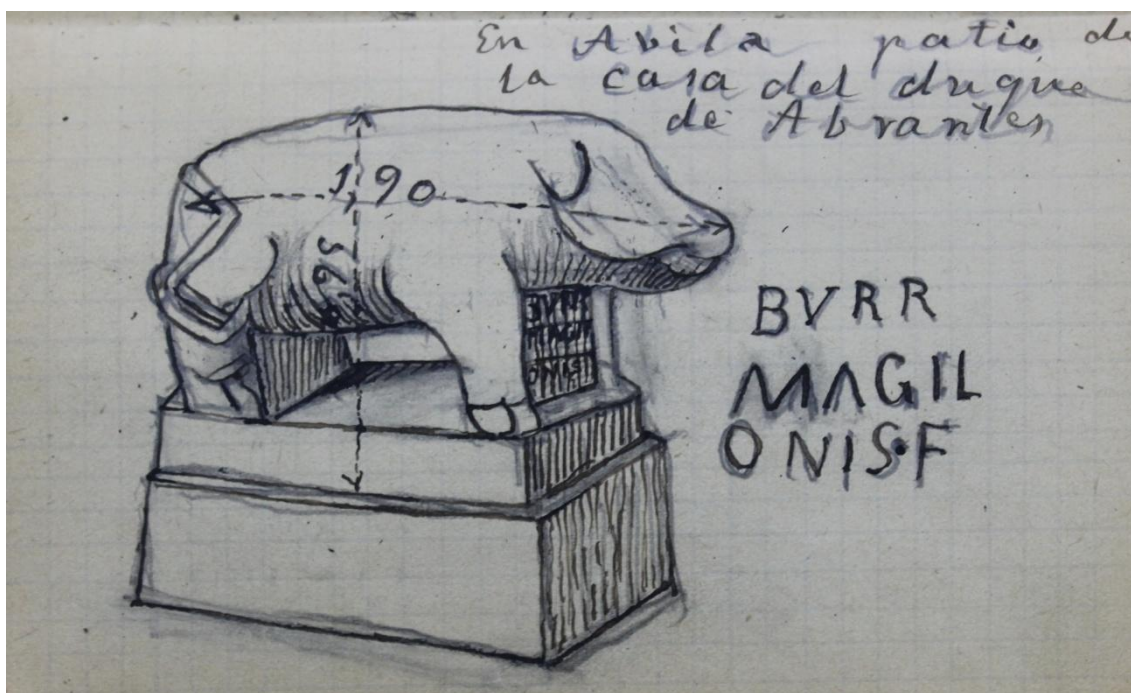 En Avila patio de
la casa del duque
de Abrantes
1,90
BVRR
MAGIL
ONIS·F
BVRR
MAGIL
ONIS·F